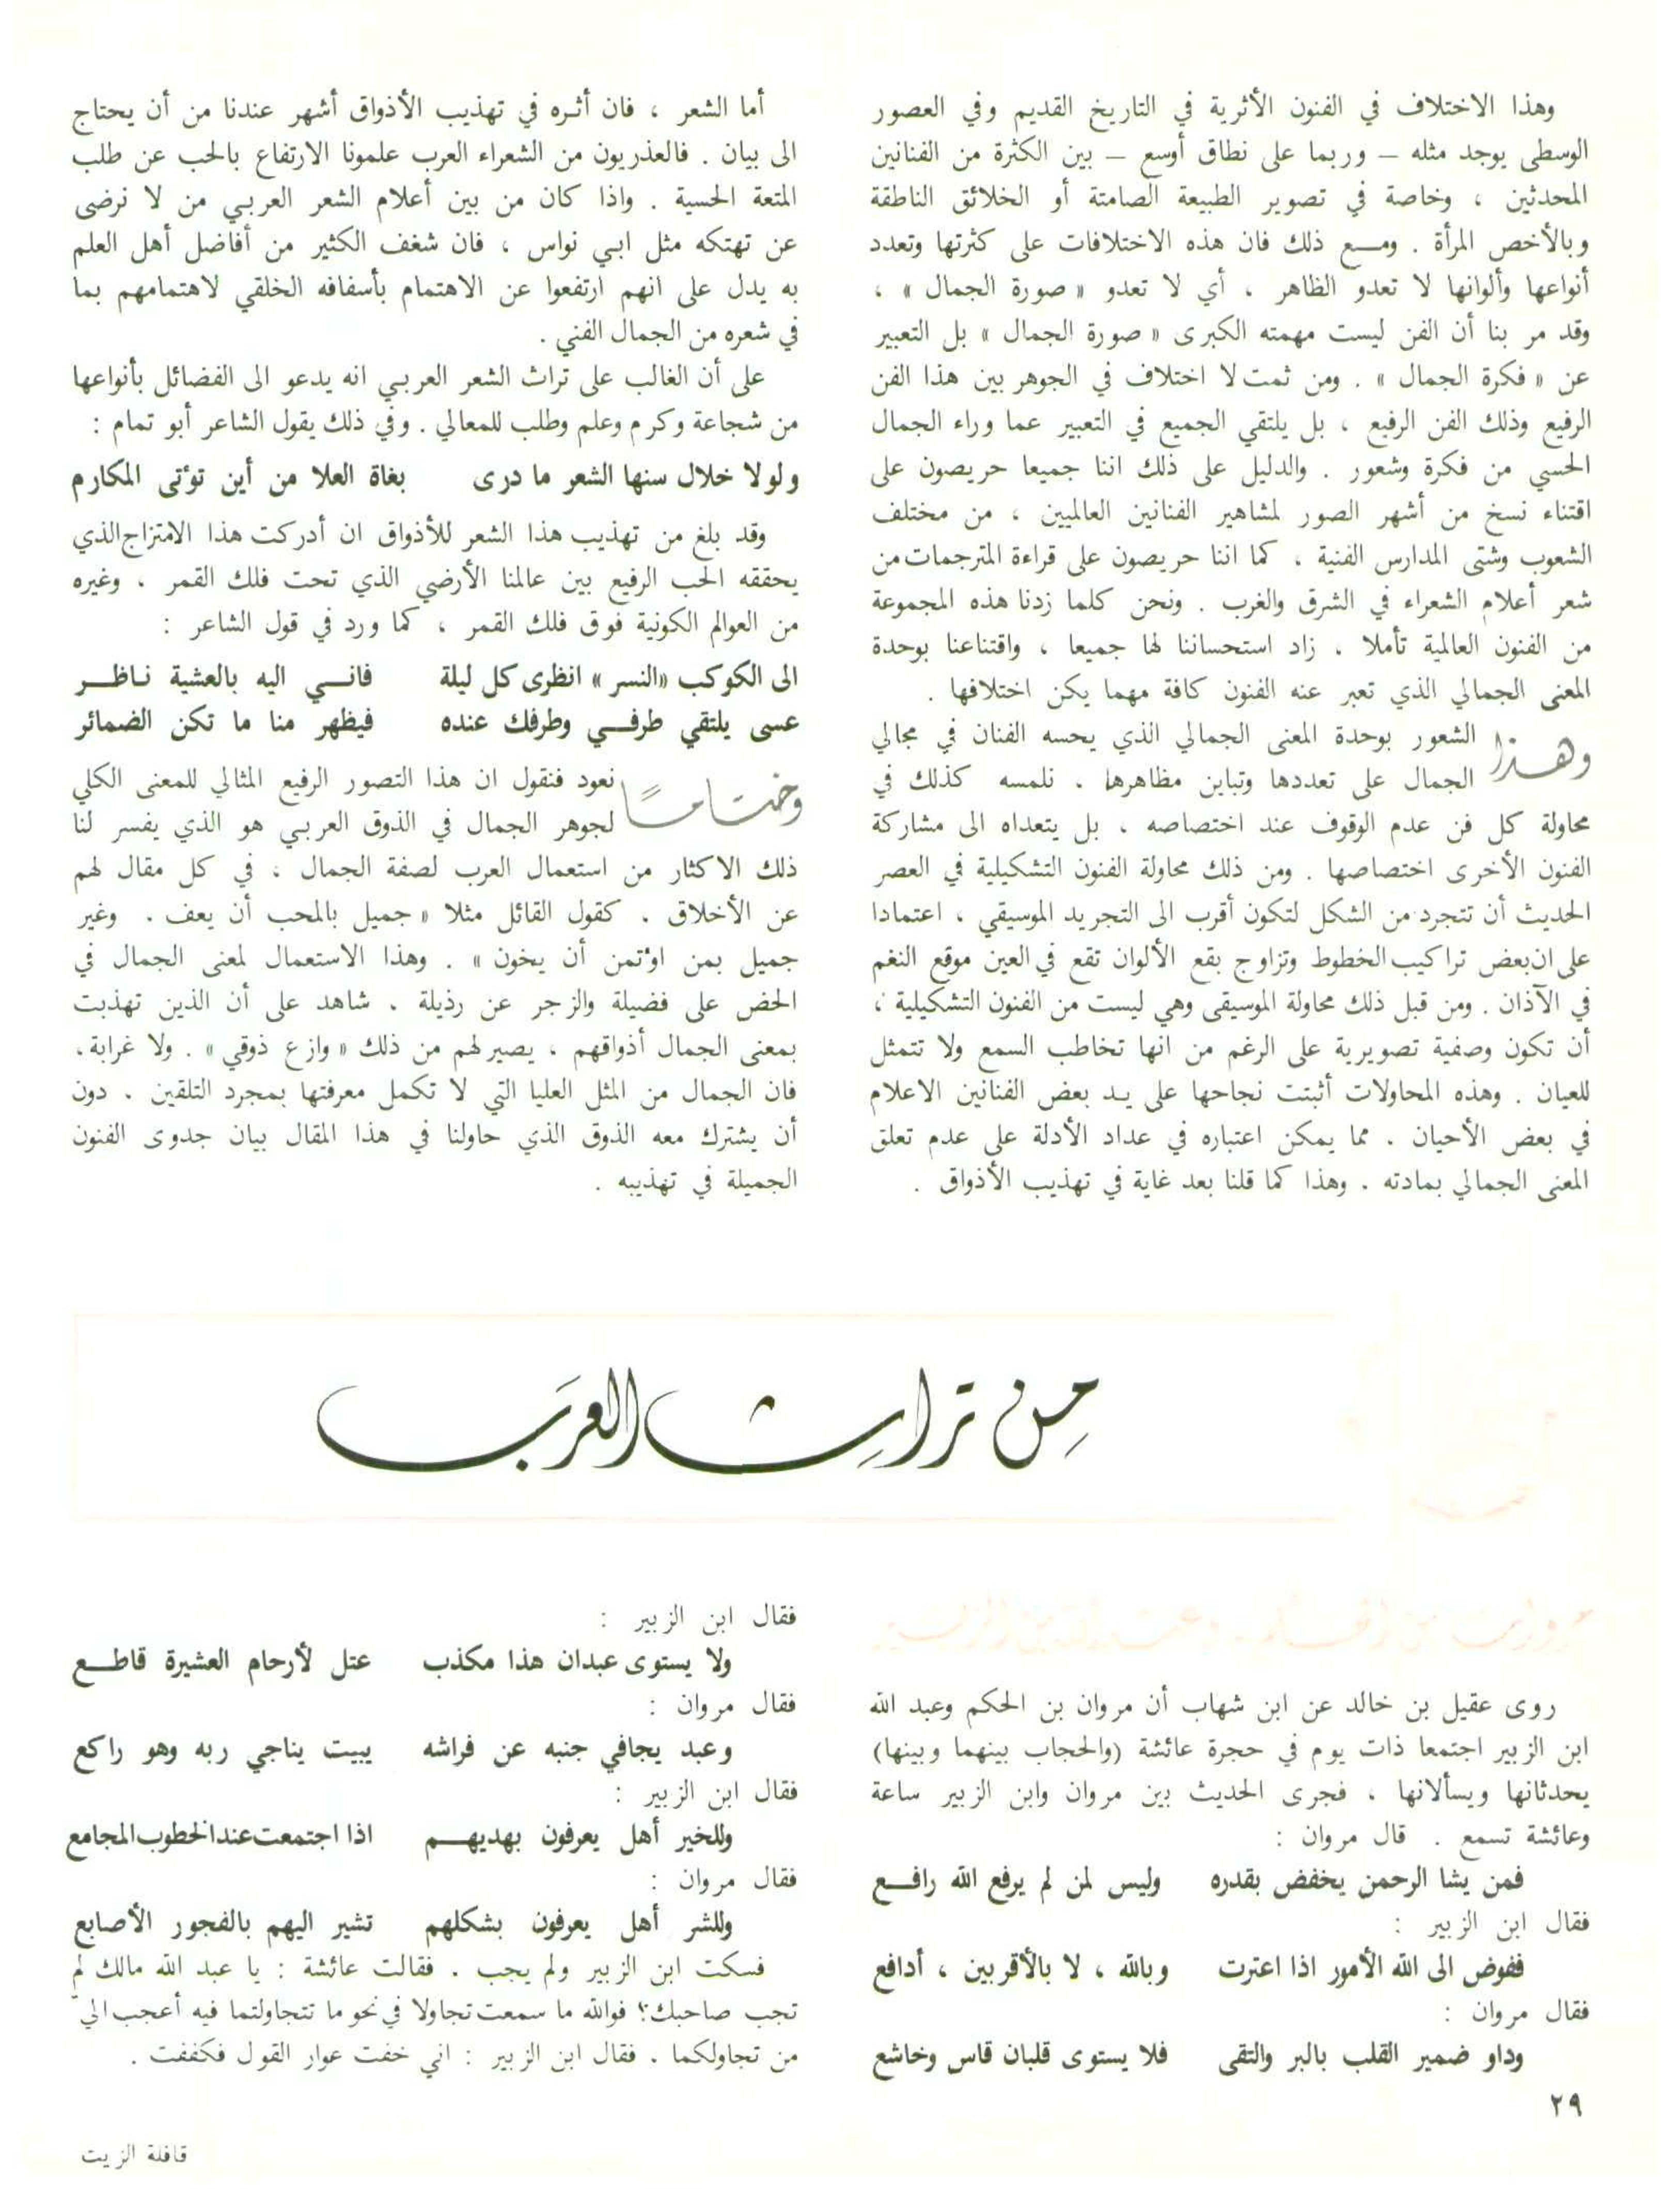 وهذا الاختلاف في الفنون الأثرية في التاريخ القديم وفي العصور
الوسطى يوجد مثله — وربما على نطاق أوسع — بين الكثرة من الفنانين
المحدثين ، وخاصة في تصوير الطبيعة الصامتة أو الخلائق الناطقة
وبالأخص المرأة . ومـع ذلك فان هذه الاختلافات على كثرتها وتعدد
أنواعها وألوانها لا تعدو الظاهر ، أي لا تعدو « صورة الجمال » ،
وقد مر بنا أن الفن ليست مهمته الكبرى « صورة الجمال » بل التعبير
عن « فكرة الجمال » . ومن ثمت لا اختلاف في الجوهر بين هذا الفن
الرفيع وذلك الفن الرفيع ، بل يلتقي الجميع في التعبير عما وراء الجمال
الحسي من فكرة وشعور . والدليل على ذلك اننا جميعا حريصون على
اقتناء نسخ من أشهر الصور لمشاهير الفنانين العالميين ، من مختلف
الشعوب وشتى المدارس الفنية ، كما اننا حريصون على قراءة المترجمات من
شعر أعلام الشعراء في الشرق والغرب . ونحن كلما زدنا هذه المجموعة
من الفنون العالمية تأملا ، زاد استحساننا لها جميعا ، واقتناعنا بوحدة
المعنى الجمالي الذي تعبر عنه الفنون كافة مهما يكن اختلافها .
وهـذا الشعور بوحدة المعنى الجمالي الذي يحسه الفنان في مجالي
الجمال على تعددها وتباين مظاهرها ، نلمسه كذلك في
محاولة كل فن عدم الوقوف عند اختصاصه ، بل يتعداه الى مشاركة
الفنون الأخرى اختصاصها . ومن ذلك محاولة الفنون التشكيلية في العصر
الحديث أن تتجرد من الشكل لتكون أقرب الى التجريد الموسيقي ، اعتمادا
على ان بعض تراكيب الخطوط وتزاوج بقع الألوان تقع في العين موقع النغم
في الآذان . ومن قبل ذلك محاولة الموسيقى وهي ليست من الفنون التشكيلية ،
أن تكون وصفية تصويرية على الرغم من انها تخاطب السمع ولا تتمثل
للعيان . وهذه المحاولات أثبتت نجاحها على يـد بعض الفنانين الاعلام
في بعض الأحيان . مما يمكن اعتباره في عداد الأدلة على عدم تعلق
المعنى الجمالي بمادته . وهذا كما قلنا بعد غاية في تهذيب الأذواق .
أما الشعر ، فان أثـره في تهذيب الأذواق أشهر عندنا من أن يحتاج
الى بيان . فالعذريون من الشعراء العرب علمونا الارتفاع بالحب عن طلب
المتعة الحسية . واذا كان من بين أعلام الشعر العربي من لا نرضى
عن تهتكه مثل ابي نواس ، فان شغف الكثير من أفاضل أهل العلم
به يدل على انهم ارتفعوا عن الاهتمام بأسفافه الخلقي لاهتمامهم بما
في شعره من الجمال الفني .
على أن الغالب على تراث الشعر العربي انه يدعو الى الفضائل بأنواعها
من شجاعة وكرم وعلم وطلب للمعالي . وفي ذلك يقول الشاعر أبو تمام :
ولولا خلال سنها الشعر ما درى بغاة العلا من أين توٴتى المكارم
وقد بلغ من تهذيب هذا الشعر للأذواق ان أدركت هذا الامتزاج الذي
يحققه الحب الرفيع بين عالمنا الأرضي الذي تحت فلك القمر ، وغيره
من العوالم الكونية فوق فلك القمر ، كما ورد في قول الشاعر :
الى الكوكب «النسر» انظرى كل ليلة فانـي اليه بالعشية نـاظـر
عسى يلتقي طرفـي وطرفك عنده فيظهر منا ما تكن الضمائر
وختـامـًا نعود فنقول ان هذا التصور الرفيع المثالي للمعنى الكلي
لجوهر الجمال في الذوق العربي هو الذي يفسر لنا
ذلك الاكثار من استعمال العرب لصفة الجمال ، في كل مقال لهم
عن الأخلاق . كقول القائل مثلا « جميل بالمحب أن يعف ، وغير
جميل بمن اوٴتمن أن يخون » . وهذا الاستعمال لمعنى الجمال في
الحض على فضيلة والزجر عن رذيلة ، شاهد على أن الذين تهذبت
بمعنى الجمال أذواقهم ، يصير لهم من ذلك « وازع ذوقي » . ولا غرابة ،
فان الجمال من المثل العليا التي لا تكمل معرفتها بمجرد التلقين . دون
أن يشترك معه الذوق الذي حاولنا في هذا المقال بيان جدوى الفنون
الجميلة في تهذيبه .
من تراث العرب
روى عقيل بن خالد عن ابن شهاب أن مروان بن الحكم وعبد الله
ابن الزبير اجتمعا ذات يوم في حجرة عائشة (والحجاب بينهما وبينها)
يحدثانها ويسألانها ، فجرى الحديث بين مروان وابن الزبير ساعة
وعائشة تسمع . قال مروان :
فمن يشا الرحمن يخفض بقدره وليس لمن لم يرفع الله رافـع
فقال ابن الزبير :
ففوض الى الله الأمور اذا اعترت وبالله ، لا بالأقربين ، أدافع
فقال مروان :
وداو ضمير القلب بالبر والتقى فلا يستوى قلبان قاس وخاشع
فقال ابن الزبير :
ولا يستوى عبدان هذا مكذب عتل لأرحام العشيرة قاطـع
فقال مروان :
وعبد يجافي جنبه عن فراشه يبيت يناجي ربه وهو راكع
فقال ابن الزبير :
وللخير أهل يعرفون بهديهـم اذا اجتمعت عند الخطوب المجامع
فقال مروان :
وللشر أهل يعرفون بشكلهم تشير اليهم بالفجور الأصابع
فسكت ابن الزبير ولم يجب . فقالت عائشة : يا عبد الله مالك لم
تجب صاحبك؟ فوالله ما سمعت تجاولا في نحو ما تتجاولتما فيه أعجب اليّ
من تجاولكما . فقال ابن الزبير : اني خفت عوار القول فكففت .
٢٩
قافلة الزيت